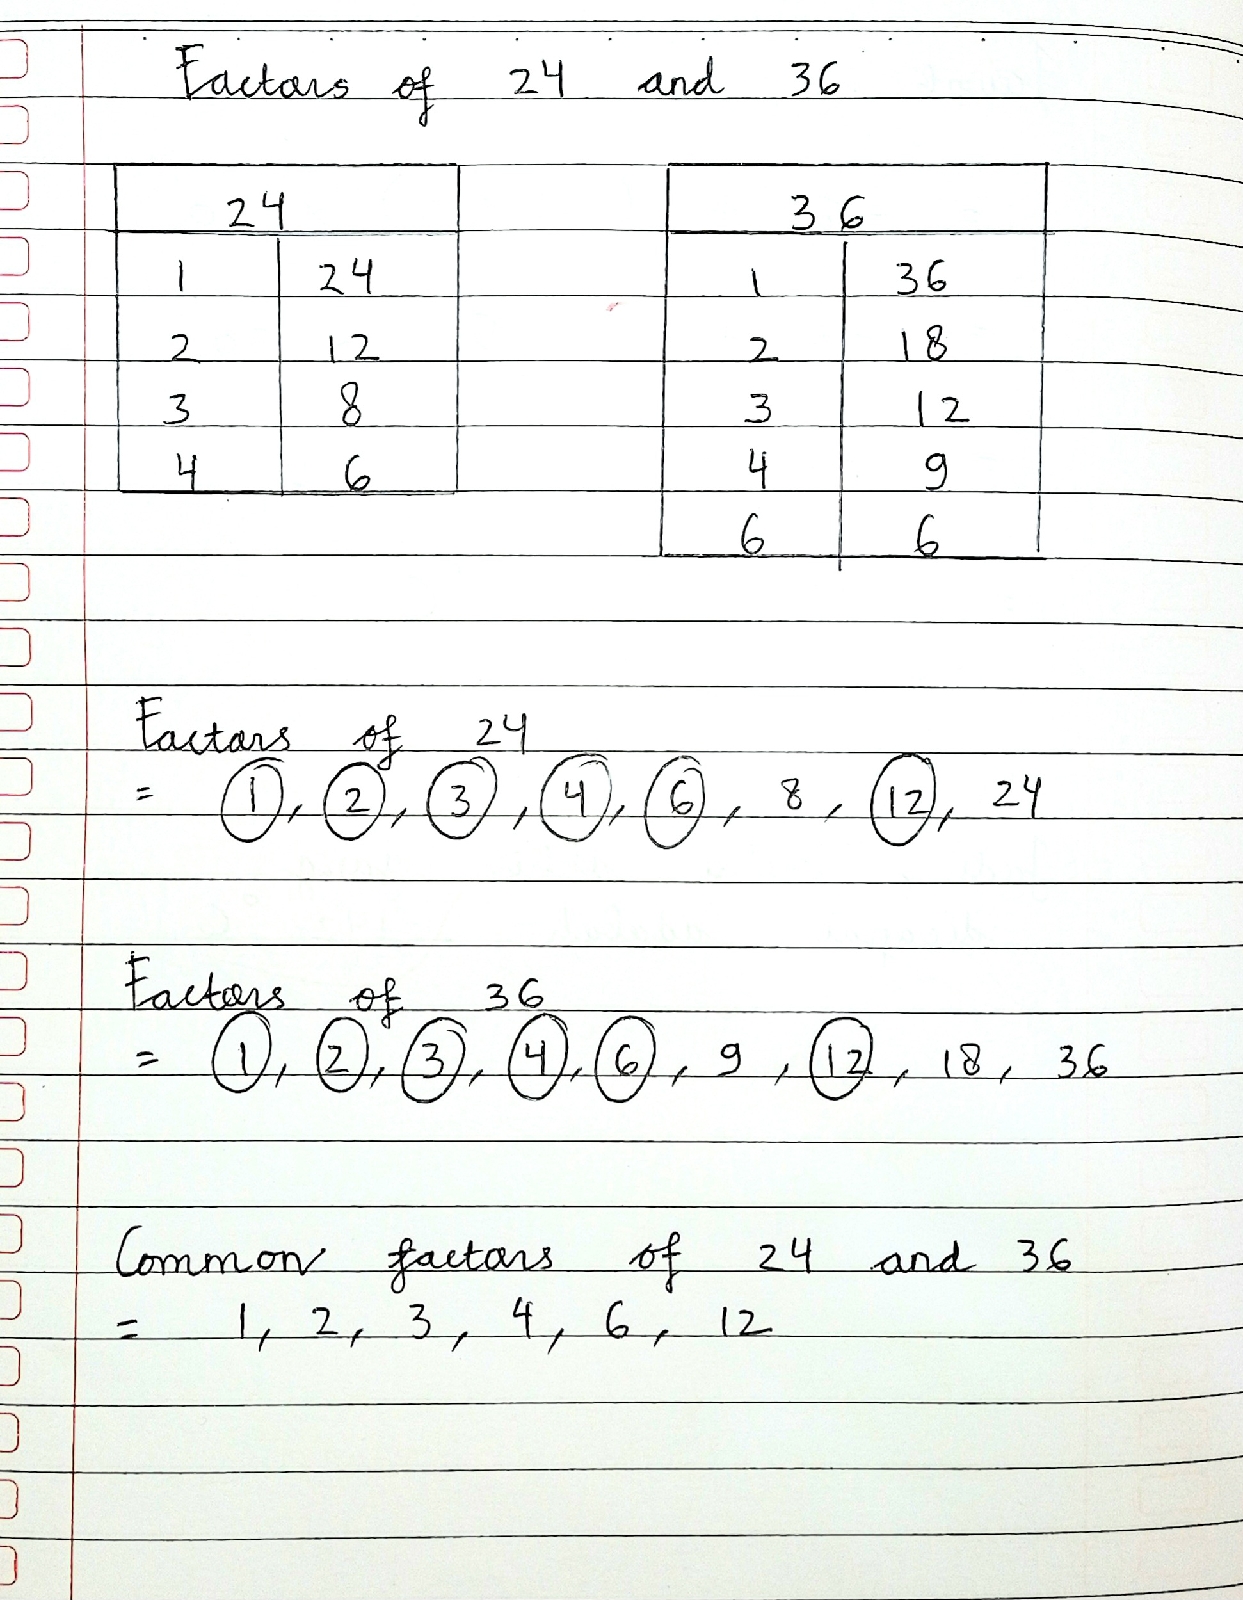 Factors of 24 and 36
24 36
1 24 1 36
2 12 2 18
3 8 3 12
4 6 4 9
6 6
Factors of 24
= 1, 2, 3, 4, 6, 8, 12, 24
Factors of 36
= 1, 2, 3, 4, 6, 9, 12, 18, 36
Common factors of 24 and 36
= 1, 2, 3, 4, 6, 12